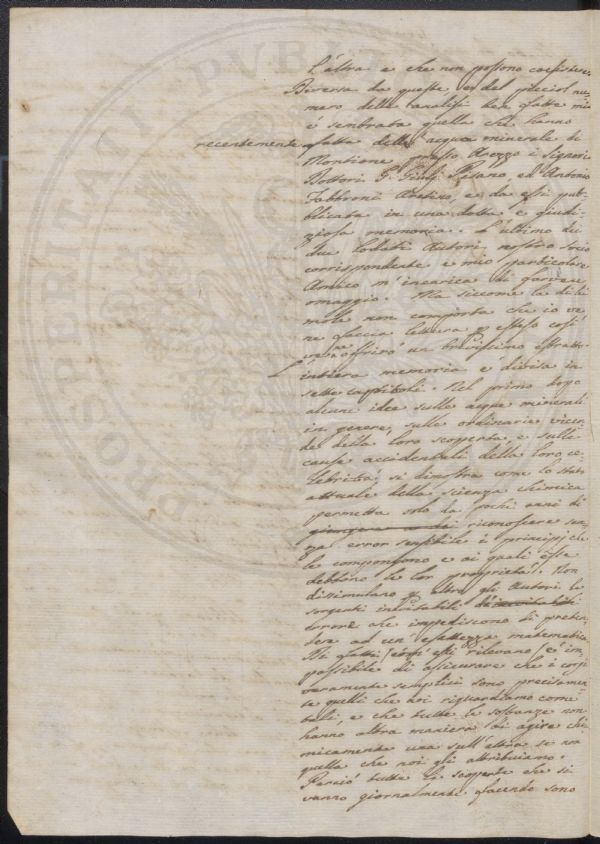 l'altra e che non possono coesistere.
Diversa da queste, e del piccol nu-
mero delle analisi ben fatte mi
è sembrata quella che hanno
recentemente fatta dell'acqua minerale di
Montione presso Arezzo i Signori
Dottori G. Giulj Pisano, ed Antonio
Fabbroni Aretino, e da essi pub-
blicata in una dotta e giudi-
ziosa memoria. L'ultimo dei
due lodati Autori, nostro Socio
corrispondente e mio particolare
Amico m'incarica di farvene
omaggio. Ma siccome la di lei
mole non comporta che io ve
ne faccia lettura p esteso così
ve ne offrirò un brevissimo estratto.
L'intiera memoria è divisa in
sette capitoli. Nel primo dopo
alcune idee sulle acque minerali
in genere, sulle ordinarie vicen-
de della loro scoperta, e sulle
cause accidentali della loro ce-
lebrità, si dimostra come lo stato
attuale della scienza chimica
permetta solo da pochi anni di
riconoscere sen-
za error sensibile i principj che
le compongono e ai quali esse
debbono le lor proprietà. Non
dissimulano p altro gli Autori le
sorgenti inevitabili
errore che impediscono di preten-
dere ad un'esattezza matematica.
Di fatti essi rilevano è im-
possibile di assicurare che i corpi
veramente semplici sono precisamen-
te quelli che noi riguardiamo come
tali, e che tutte le sostanze non
hanno altra maniera di agire chi-
micamente una sull'altra se non
quella che noi gli attribuiamo.
Perciò tutte le scoperte che si
vanno giornalmente facendo sono
PROSPERITATI PVBLI